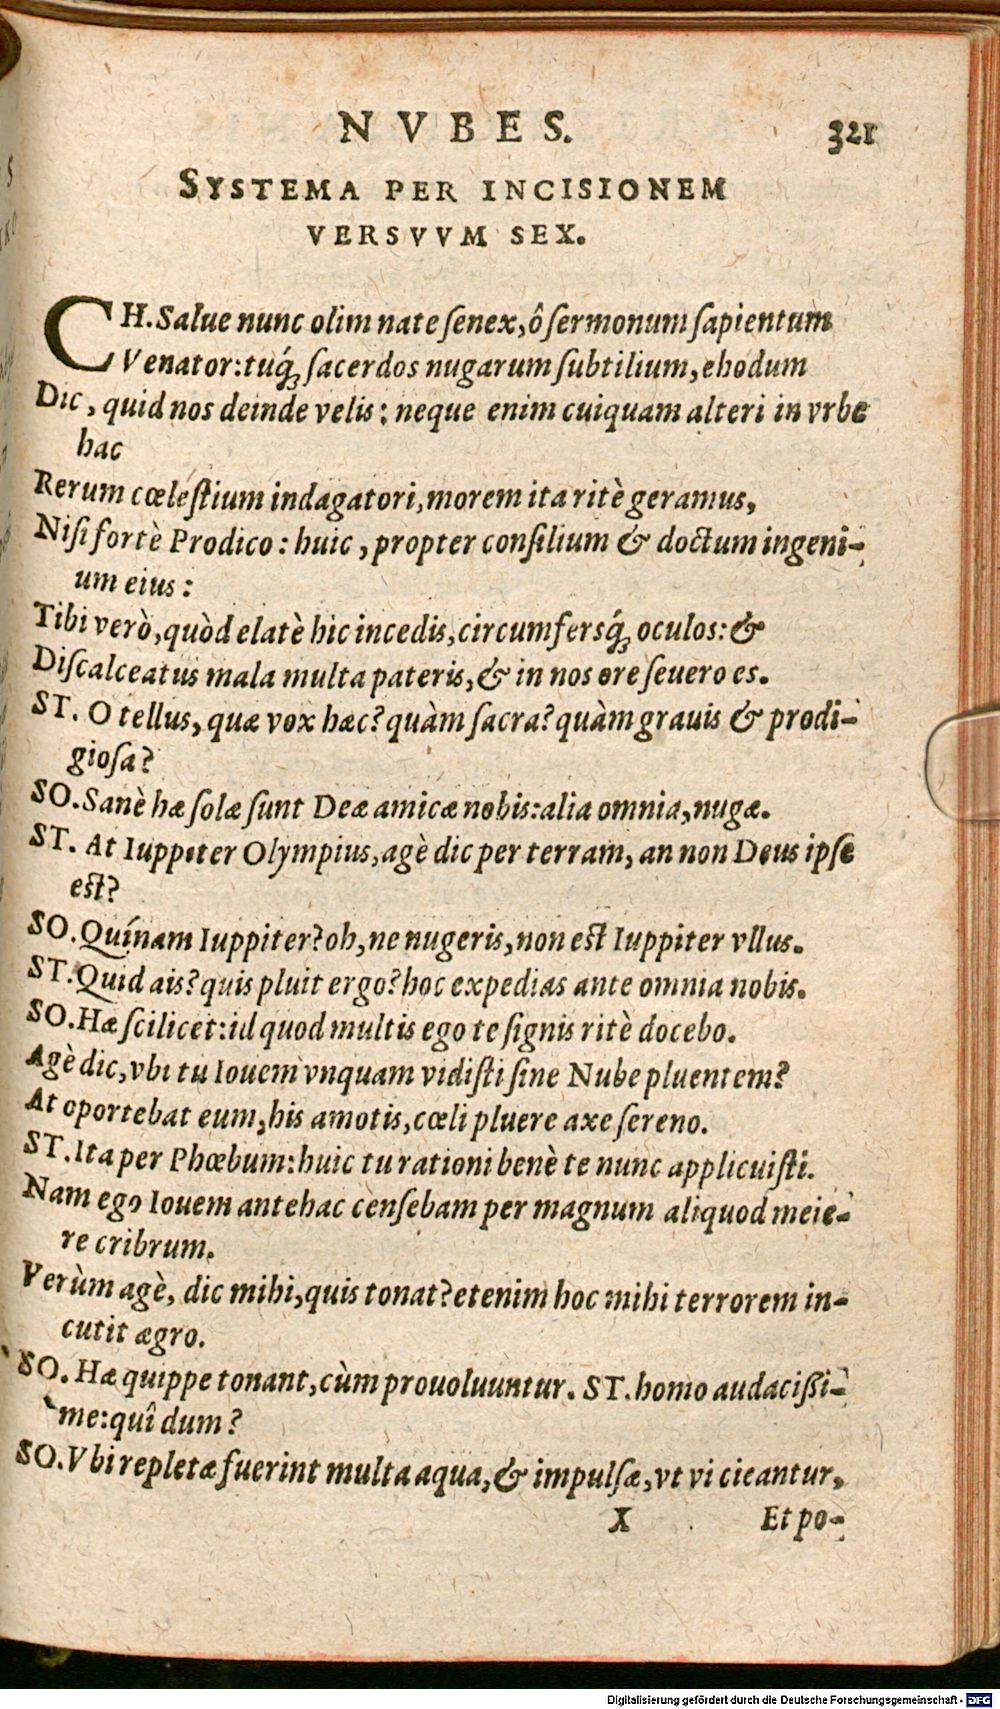 NVBES. 321
SYSTEMA PER INCISIONEM
VERSVVM SEX.
CH. Salue nunc olim nate senex, ô sermonum sapientum
Venator: tuq́; sacerdos nugarum subtilium, ehodum
Dic, quid nos deinde velis: neque enim cuiquam alteri in vrbe
hac
Rerum cœlestium indagatori, morem ita ritè geramus,
Nisi fortè Prodico: huic, propter consilium & doctum ingeni-
um eius:
Tibi verò, quòd elatè hic incedis, circumfersq́; oculos: &
Discalceatus mala multa pateris, & in nos ore seuero es.
ST. O tellus, quæ vox hæc? quàm sacra? quàm grauis & prodi-
giosa?
SO. Sanè hæ solæ sunt Deæ amicæ nobis: alia omnia, nugæ.
ST. At Iuppiter Olympius, agè dic per terram, an non Deus ipse
est?
SO. Quínam Iuppiter? oh, ne nugeris, non est Iuppiter vllus.
ST. Quid ais? quis pluit ergo? hoc expedias ante omnia nobis.
SO. Hæ scilicet: id quod multis ego te signis ritè docebo.
Agè dic, vbi tu Iouem vnquam vidisti sine Nube pluentem?
At oportebat eum, his amotis, cœli pluere axe sereno.
ST. Ita per Phœbum: huic tu rationi benè te nunc applicuisti.
Nam ego Iouem antehac censebam per magnum aliquod meie-
re cribrum.
Verùm agè, dic mihi, quis tonat? etenim hoc mihi terrorem in-
cutit ægro.
SO. Hæ quippe tonant, cùm prouoluuntur. ST. homo audacissi-
me: quî dum?
SO. Vbi repletæ fuerint multa aqua, & impulsæ, vt vi cieantur,
X Et po-
Digitalisierung gefördert durch die Deutsche Forschungsgemeinschaft - DFG